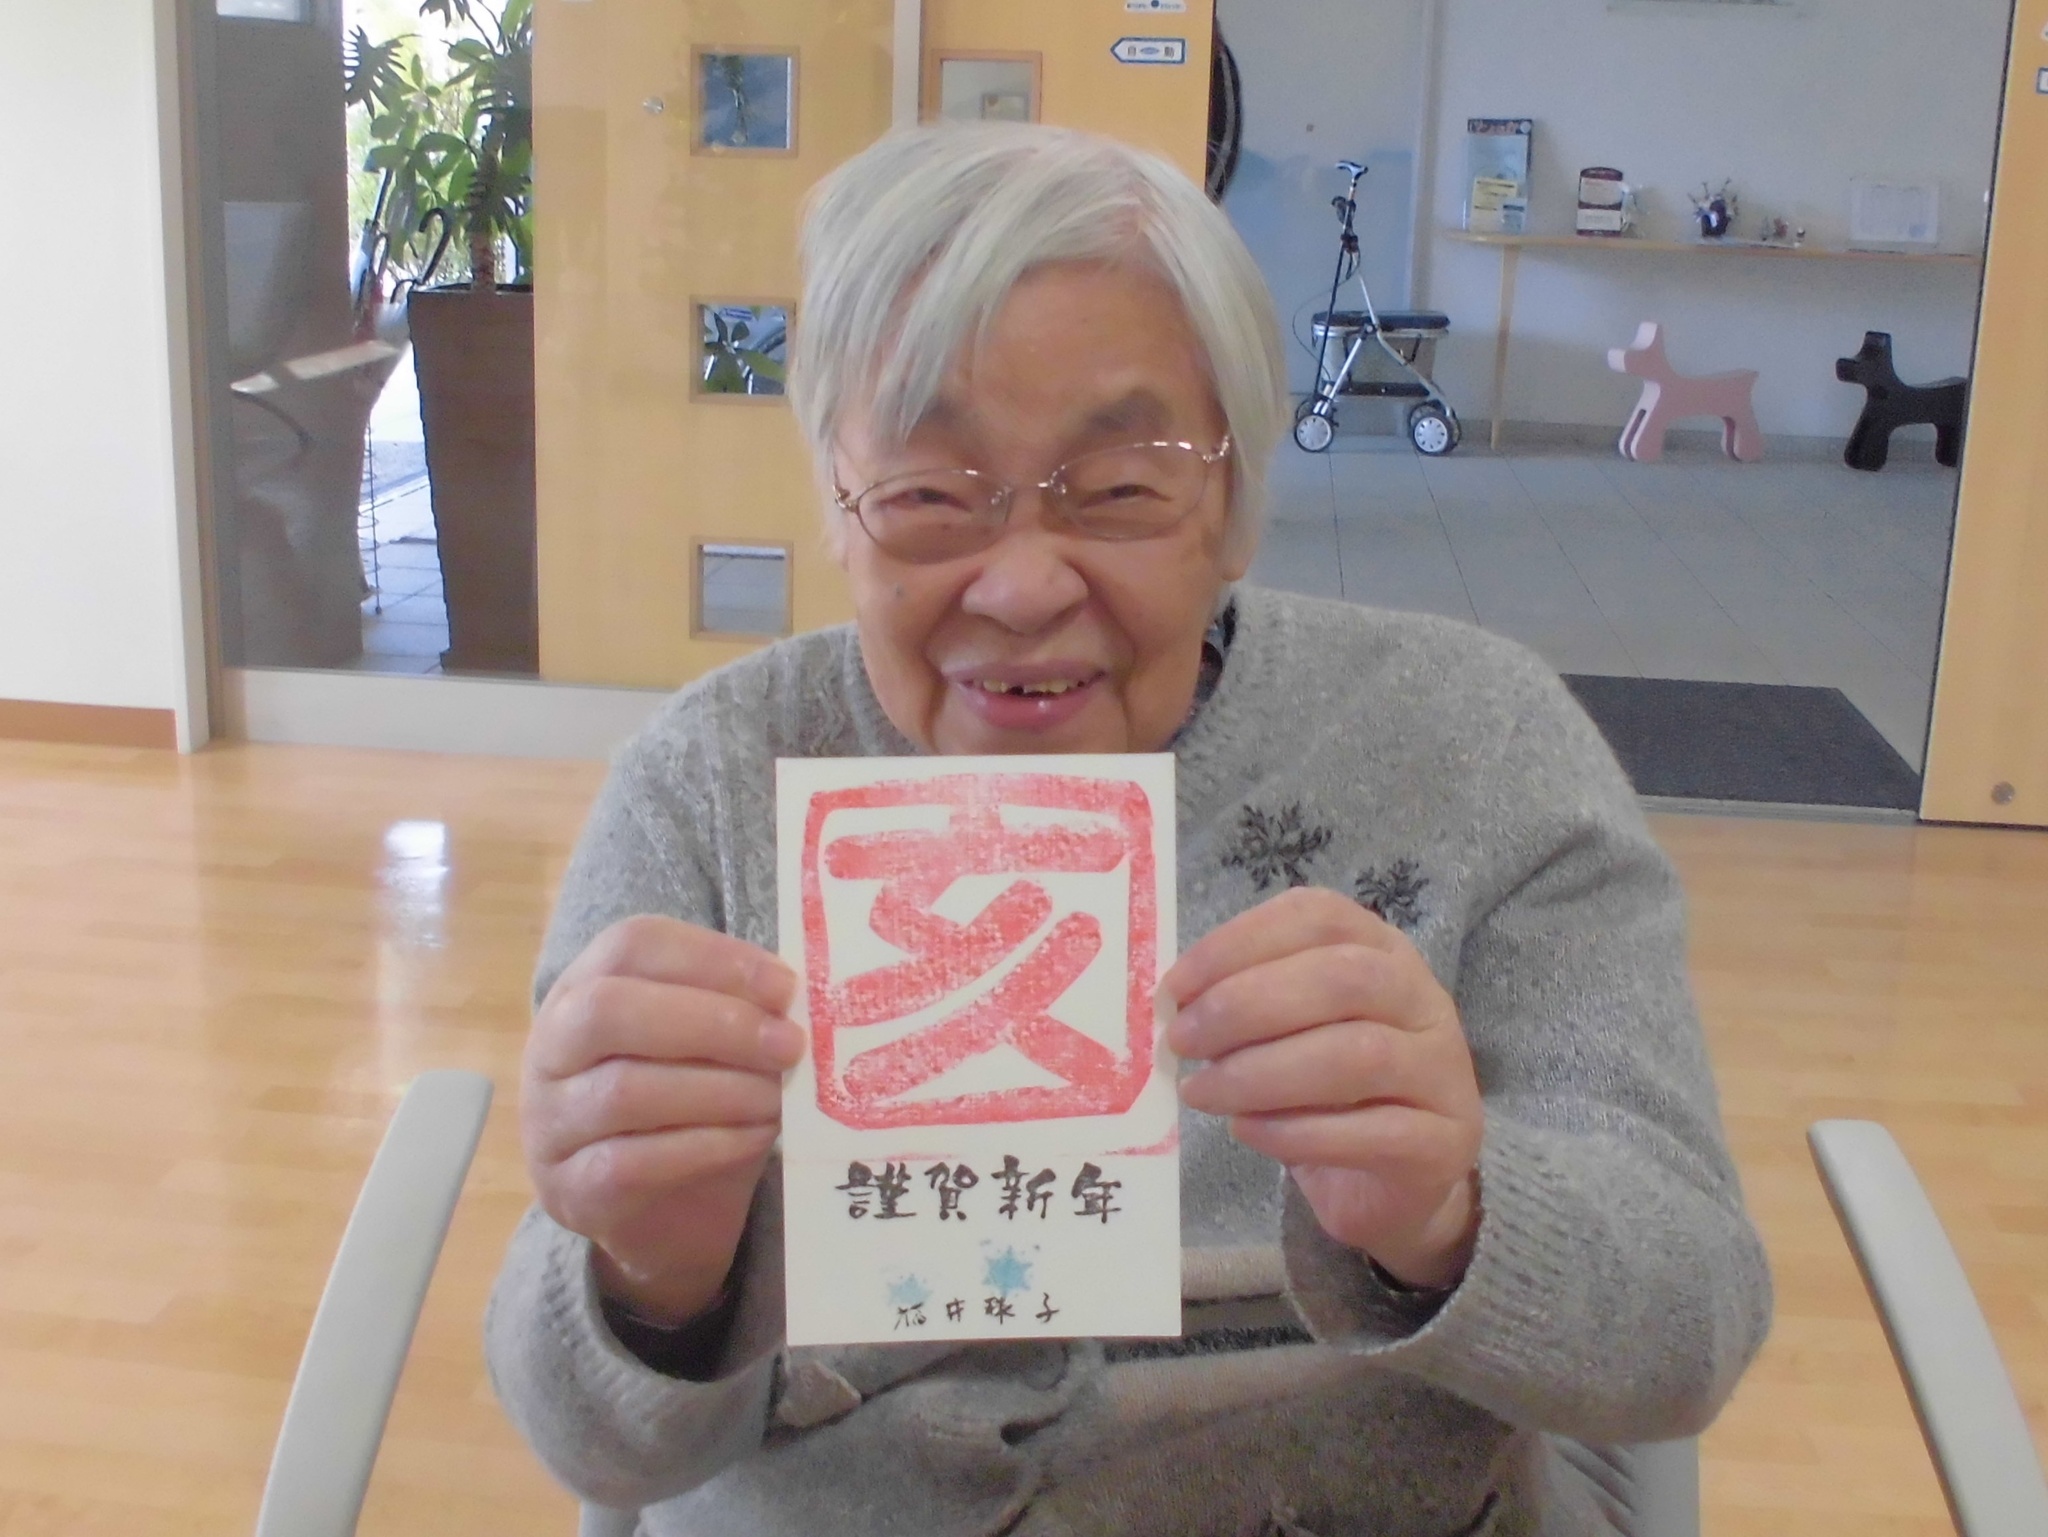 自動
亥
謹賀新年
福井球子